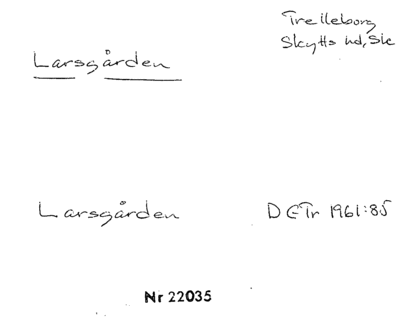 Trelleborg
Skytts hd, Sk
Larsgården
Larsgården DGTr 1961:85
Nr 22035